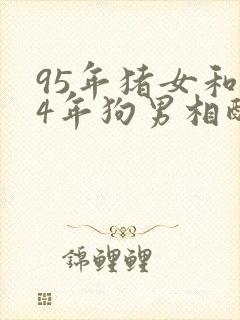 95年猪女和
4年狗男相配
錦鲤鲤